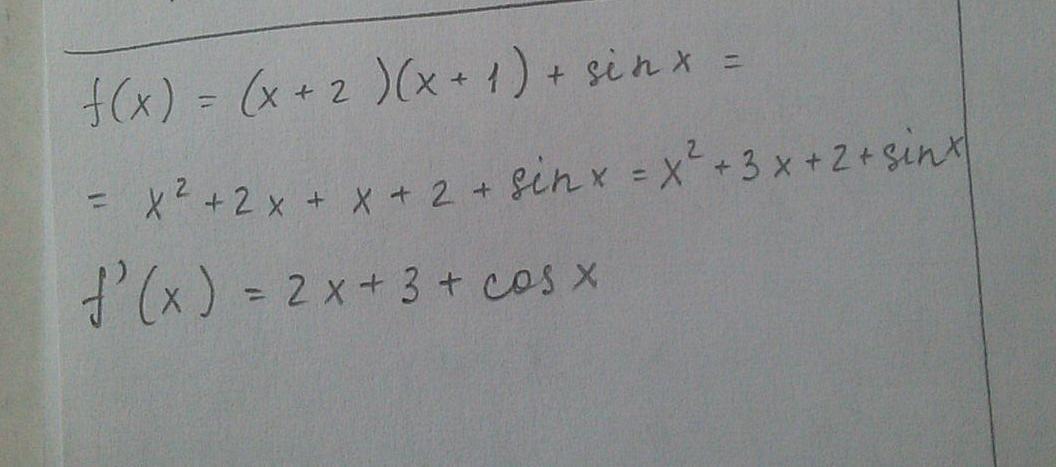 f(x) = (x + 2)(x + 1) + sin x =
= x² + 2x + x + 2 + sin x = x² + 3x + 2 + sin x
f'(x) = 2x + 3 + cos x